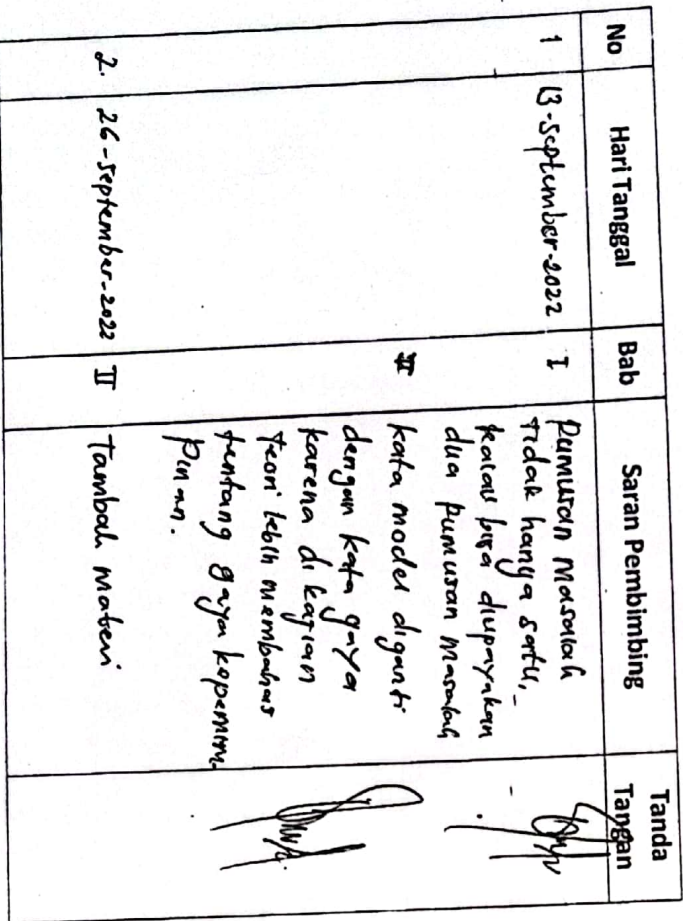 No Hari Tanggal Bab Saran Pembimbing Tanda Tangan
1 13-September-2022 I Rumusan Masalah
tidak hanya satu,-
kalau bisa diupayakan
dua rumusan masalah
II kata model diganti
dengan kata gaya
karena di kajian
teori lebih membahas
tentang gaya kepemim-
pinan.
2. 26-September-2022 II Tambah materi